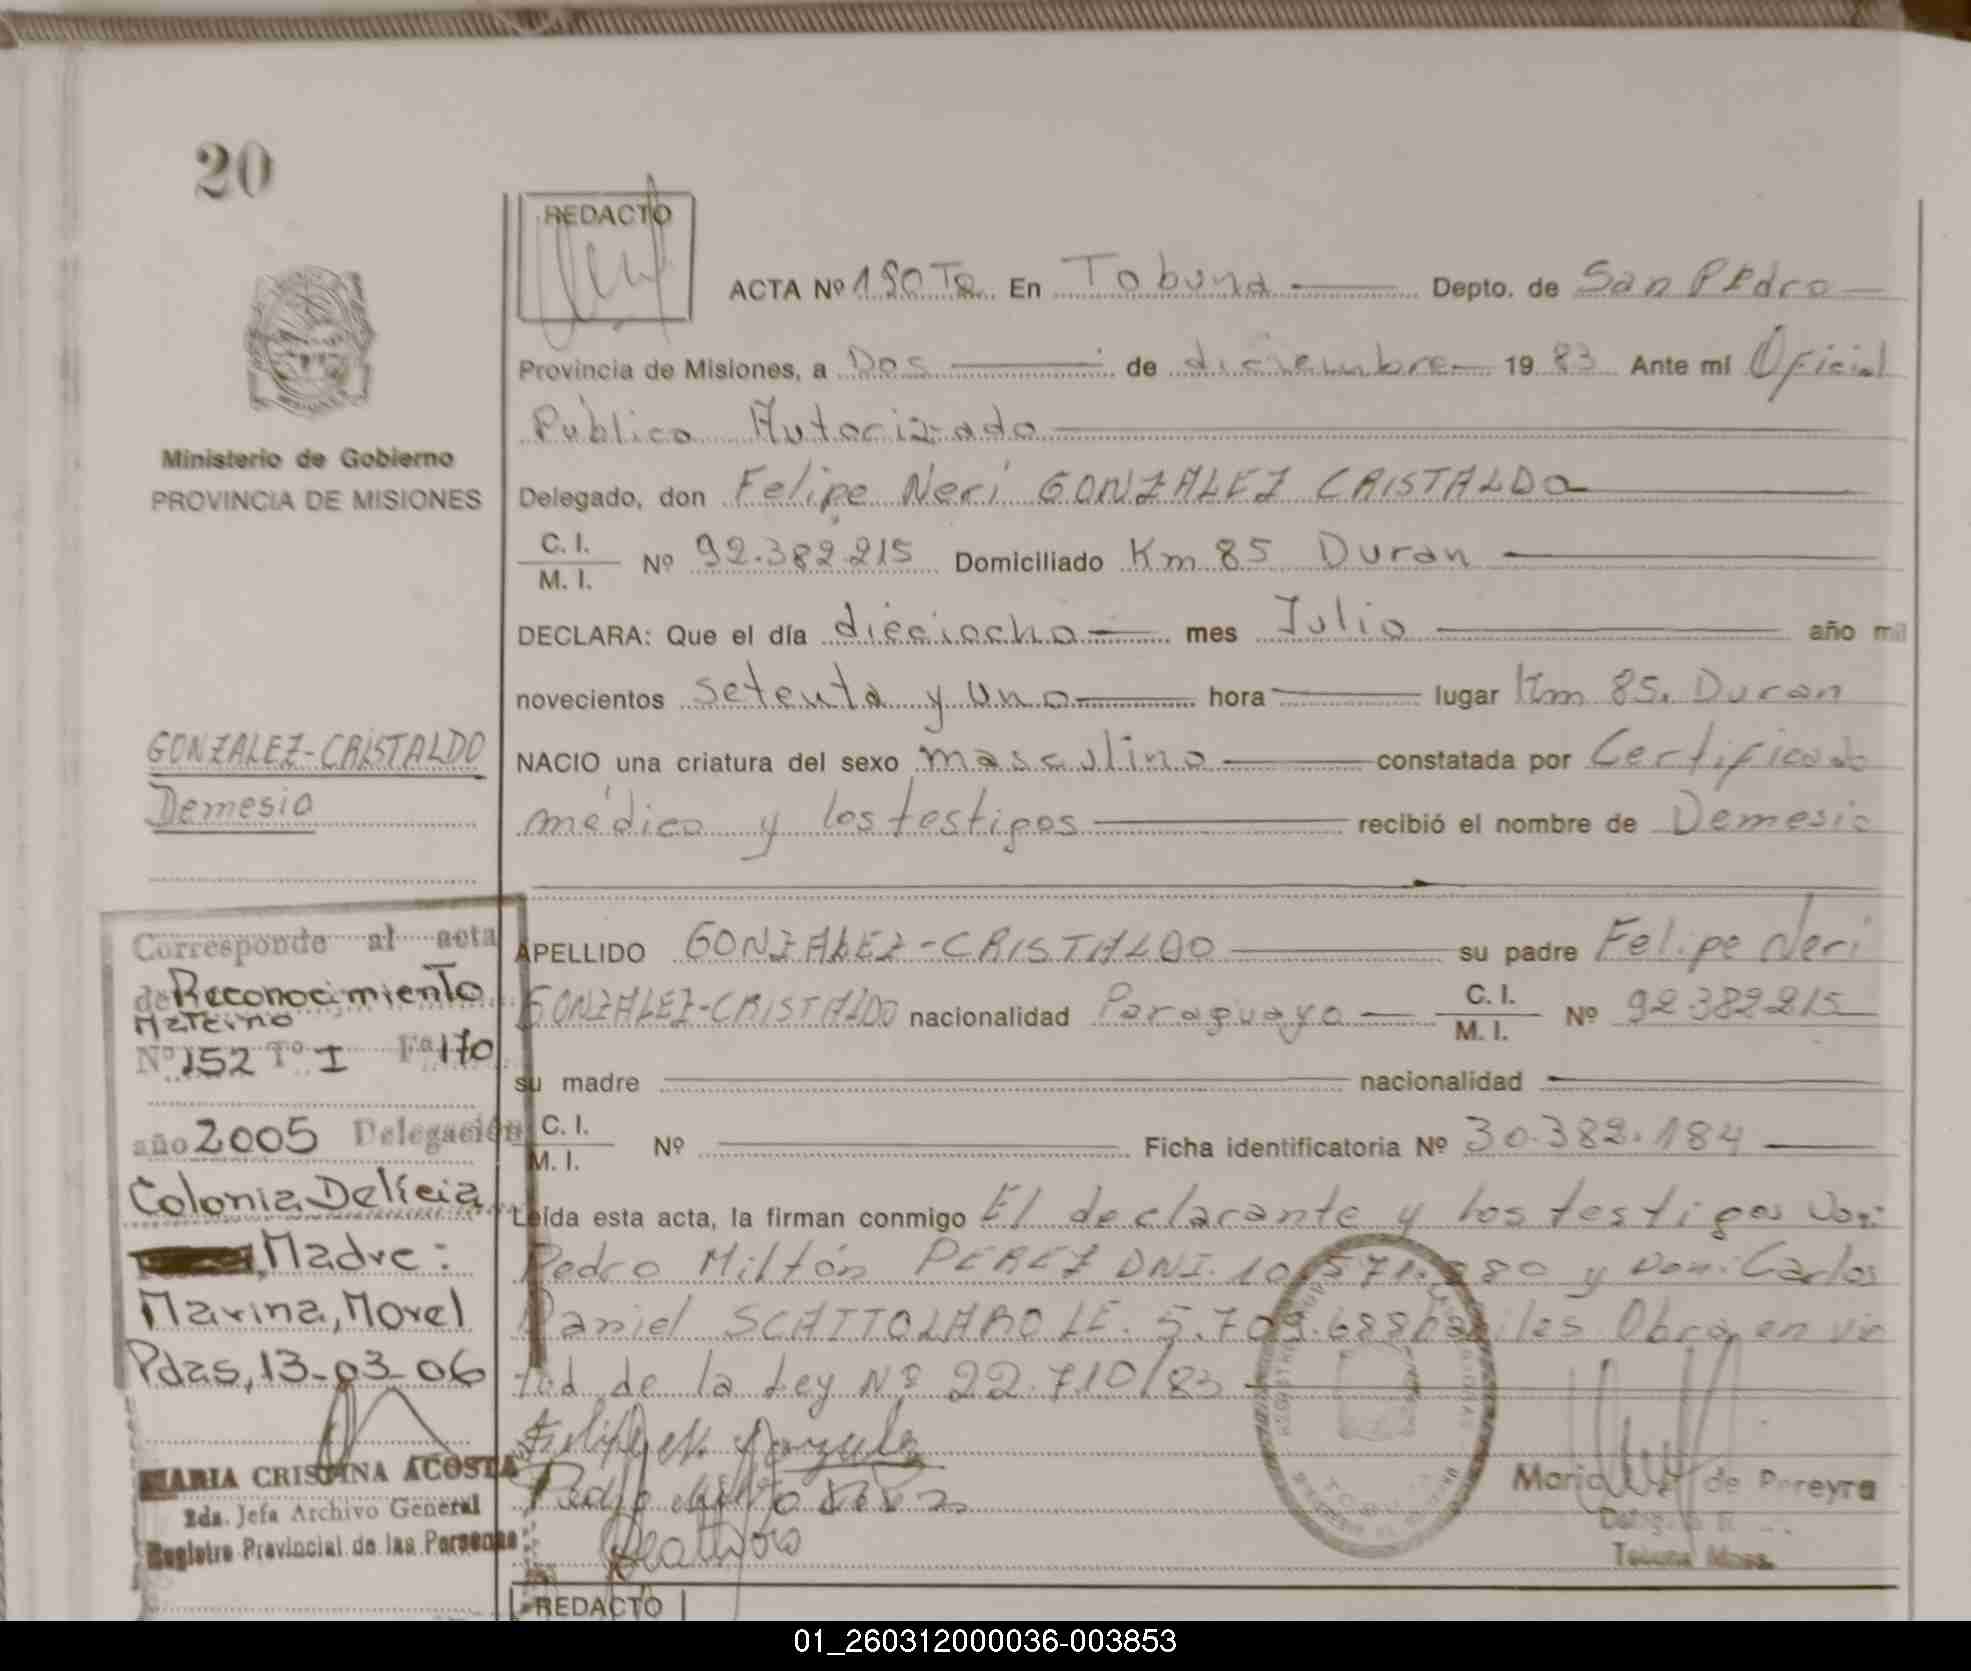 20
REDACTO
ACTA Nº 190 Tº. En Tobuna Depto. de San Pedro
Provincia de Misiones, a Dos de diciembre 19 83 Ante mí Oficial
Público Autorizado
Ministerio de Gobierno
PROVINCIA DE MISIONES
Delegado, don Felipe Neri GONZALEZ CRISTALDO
C. I.
M. I.
Nº 92.382.215 Domiciliado Km 85 Duran
DECLARA: Que el día dieciocho mes Julio año mil
novecientos setenta y uno hora lugar Km 85. Duran
GONZALEZ-CRISTALDO
Demesio
NACIO una criatura del sexo masculino constatada por Certificado
médico y los testigos recibió el nombre de Demesio
APELLIDO GONZALEZ-CRISTALDO su padre Felipe Neri
GONZALEZ-CRISTALDO nacionalidad Paraguayo C. I. M. I. Nº 92382215
su madre nacionalidad
C. I.
M. I.
Nº Ficha identificatoria Nº 30.382.184
Leída esta acta, la firman conmigo El declarante y los testigos Don:
Pedro Miltón PEREZ DNI. 10.571.880 y Don: Carlos
Daniel SCATTOLARO LE. 5.709.688 habiles Obra en vir
tud de la Ley Nº 22.710/83
Corresponde al acta
de Reconocimiento
Materno
Nº 152 Tº I Fº 170
año 2005 Delegación
Colonia Delicia
Madre:
Marina, Morel
Pdas, 13-03-06
MARIA CRISTINA ACOSTA
2da. Jefa Archivo General
Registro Provincial de las Personas
Maria de Pereyra
Tobuna Mnes.
REDACTO
01_260312000036-003853